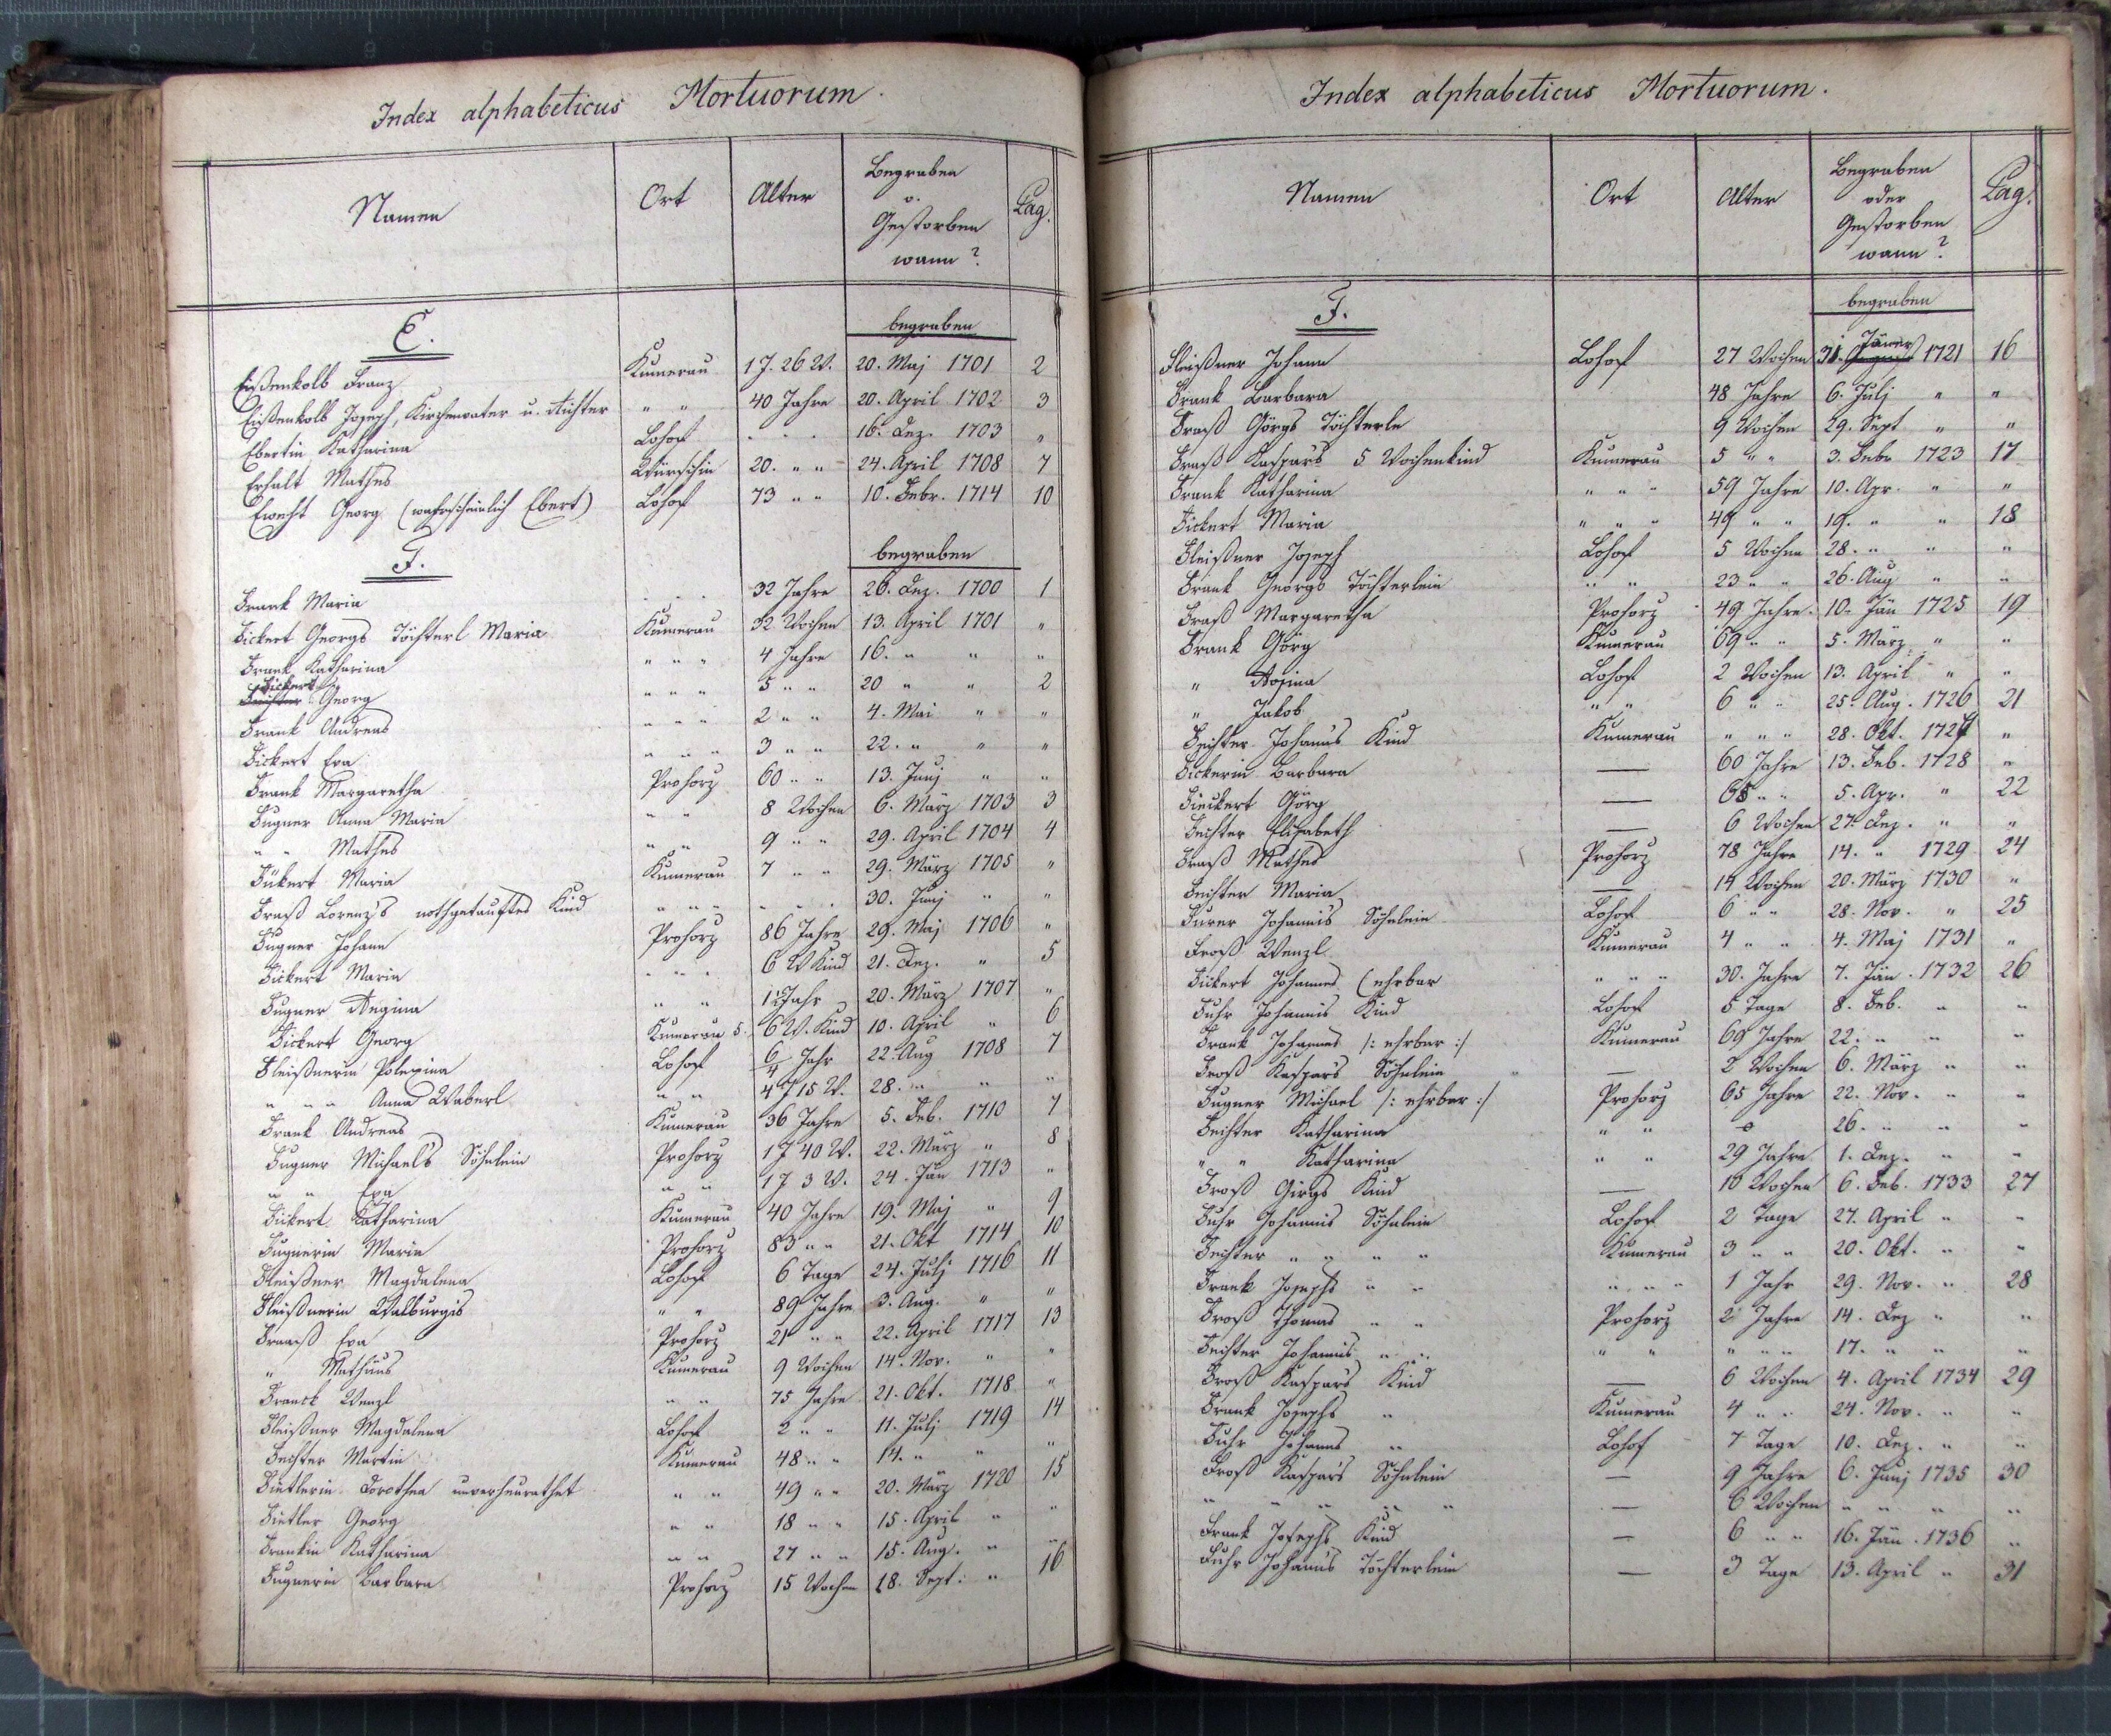 Index alphabeticus Mortuorum.
Namen Ort Alter Begraben o. Gestorben wann? Pag.
E. begraben
Eißenkolb Franz Kumerau 1 J. 26 W. 20. Maj 1701 2
Eißenkolb Joseph, Kirchenvater u. Richter " " 40 Jahre 20. April 1702 3
Ebertin Katharina Lohof - - - 16. Dez. 1703 "
Erhalt Mathes 20. " " 24. April 1708 7
Eweht Georg (wahrscheinlich Ebert) Lohof 73 " " 10. Febr. 1714 10
F. begraben
Frank Maria - - - 32 Jahre 26. Dez. 1700 1
Fickert Georgs Töchterl Maria Kumerau 32 Wochen 13. April 1701 "
Frank Katharina " " " 4 Jahre 16. " " "
Fickert Georg " " " 5 " " 20 " " 2
Frank Andreas " " " 2 " " 4. Mai " "
Fickert Eva " " " 3 " " 22. " " "
Frank Margaretha Prohorz 60 " " 13. Junj " "
Fugner Anna Maria " " 8 Wochen 6. März 1703 3
" " Mathes " " 9 " " 29. April 1704 4
Fükert Maria Kumerau 7 " " 29. März 1705 "
Fraß Lorenz's nothgetauftes Kind " " " - - - 30. Junj " "
Fugner Johann Prohorz 86 Jahre 29. Maj 1706 "
Fickert Maria - - - 6 W Kind 21. Dez. " 5
Fugner Regina " " 20. März 1707 "
Fickert Georg Kumerau 5. 6 W. Kind 10. April " 6
Fleißnerin Polexina Lohof 6/4 Jahr 22. Aug 1708 7
" " " Anna Waberl " " 4 J 15 W. 28. " " "
Frank Andreas Kumerau 36 Jahre 5. Feb. 1710 7
Fugner Michaels Söhnlein Prohorz 1 J 40 W. 22. März " 8
" " Eva " " 1 J 3 W. 24. Jän 1713 "
Fickert Katharina Kumerau 40 Jahre 19. Maj " 9
Fugnerin Maria Prohorz 83 " " 21. Okt 1714 10
Fleißner Magdalena Lohof 6 Tage 24. Julj 1716 11
Fleißnerin Walburgis " " 89 Jahre 3. Aug. " "
Fraaß Eva Prohorz 21 " " 22. April 1717 13
" Mathäus Kumerau 9 Wochen 14. Nov. " "
Franck Wenzl " " 75 Jahre 21. Okt. 1718 "
Fleißner Magdalena Lohof 2 " " 11. Julj 1719 14
Feichter Martin Kumerau 48 " " 14. " " "
Fietlerin Dorothea unverheurathet " " 49 " " 20. März 1720 15
Fietler Georg " " 18 " " 15. April " "
Frankin Katharina " " 27 " " 15. Aug. " "
Fugnerin Barbara Prohorz 15 Wochen 18. Sept. " 16
Index alphabeticus Mortuorum.
Namen Ort Alter Begraben oder Gestorben wann? Pag.
F. begraben
Fleißner Johann Lohof 27 Wochen 31. Jäner 1721 16
Frank Barbara 48 Jahre 6. Julj " "
Fraß Görgs Töchterle 9 Wochen 29. Sept " "
Fraß Kaspars 5 Wochenkind Kumerau 5 " " 3. Febr 1723 17
Frank Katharina " " " 59 Jahre 10. Apr. " "
Fickert Maria " " " 49 " " 19. " " 18
Fleißner Joseph Lohof 5 Wochen 28. " " "
Frank Georgs Töchterlein " " 23 " " 26. Aug " "
Fraß Margaretha Prohorz 49 Jahre 10. Jän 1725 19
Frank Görg Kumerau 69 " " 5. März " "
" Rosina Lohof 2 Wochen 13. April " "
" Jakob " " 6 " " 25. Aug. 1726 21
Feichter Johanns Kind Kumerau " " " 28. Okt. 1727 "
Fickerin Barbara — 60 Jahre 13. Feb. 1728 "
Fieckert Görg — 68 " " 5. Apr. " 22
Feichter Elisabeth — 6 Wochen 27. Dez. " "
Fraß Mathes Prohorz 78 Jahre 14. " 1729 24
Feichter Maria — 14 Wochen 20. März 1730 "
Furer Johannis Söhnlein Lohof 6 " " 28. Nov. " 25
Froß Wenzl Kumerau 4 " " 4. Maj 1731 "
Fickert Johannes (ehrbar " " " 30. Jahre 7. Jän. 1732 26
Fuhr Johannis Kind Lohof 5 Tage 8. Feb. " "
Frank Johannes /: ehrbar :/ Kumerau 69 Jahre 22. " " "
Froß Kaspars Söhnlein — 2 Wochen 6. März " "
Fugner Michael /: ehrbar :/ Prohorz 65 Jahre 22. Nov. " "
Feichter Katharina " " 26. " " "
" " Katharina " " 29 Jahre 1. Dez. " "
Froß Girgs Kind — 10 Wochen 6. Feb. 1733 27
Fuhr Johannis Söhnlein Lohof 2 Tage 27. April " "
Feichter " " " " Kumerau 3 " " 20. Okt. " "
Frank Josephs " " " " " 1 Jahr 29. Nov. " 28
Froß Thomas " " Prohorz 2 Jahre 14. Dez " "
Feichter Johannis " " " " " " " 17. " " "
Froß Kaspars Kind — 6 Wochen 4. April 1734 29
Frank Josephs " Kumerau 4 " " 24. Nov. " "
Fuhr Johanns " Lohof 7 Tage 10. Dez. " "
Froß Kaspars Söhnlein — 9 Jahre 6. Junj 1735 30
" " " " " — 6 Wochen " " " "
Frank Josephs Kind — 6 " " 16. Jän. 1736 "
Fuhr Johanns Töchterlein — 3 Tage 13. April " 31